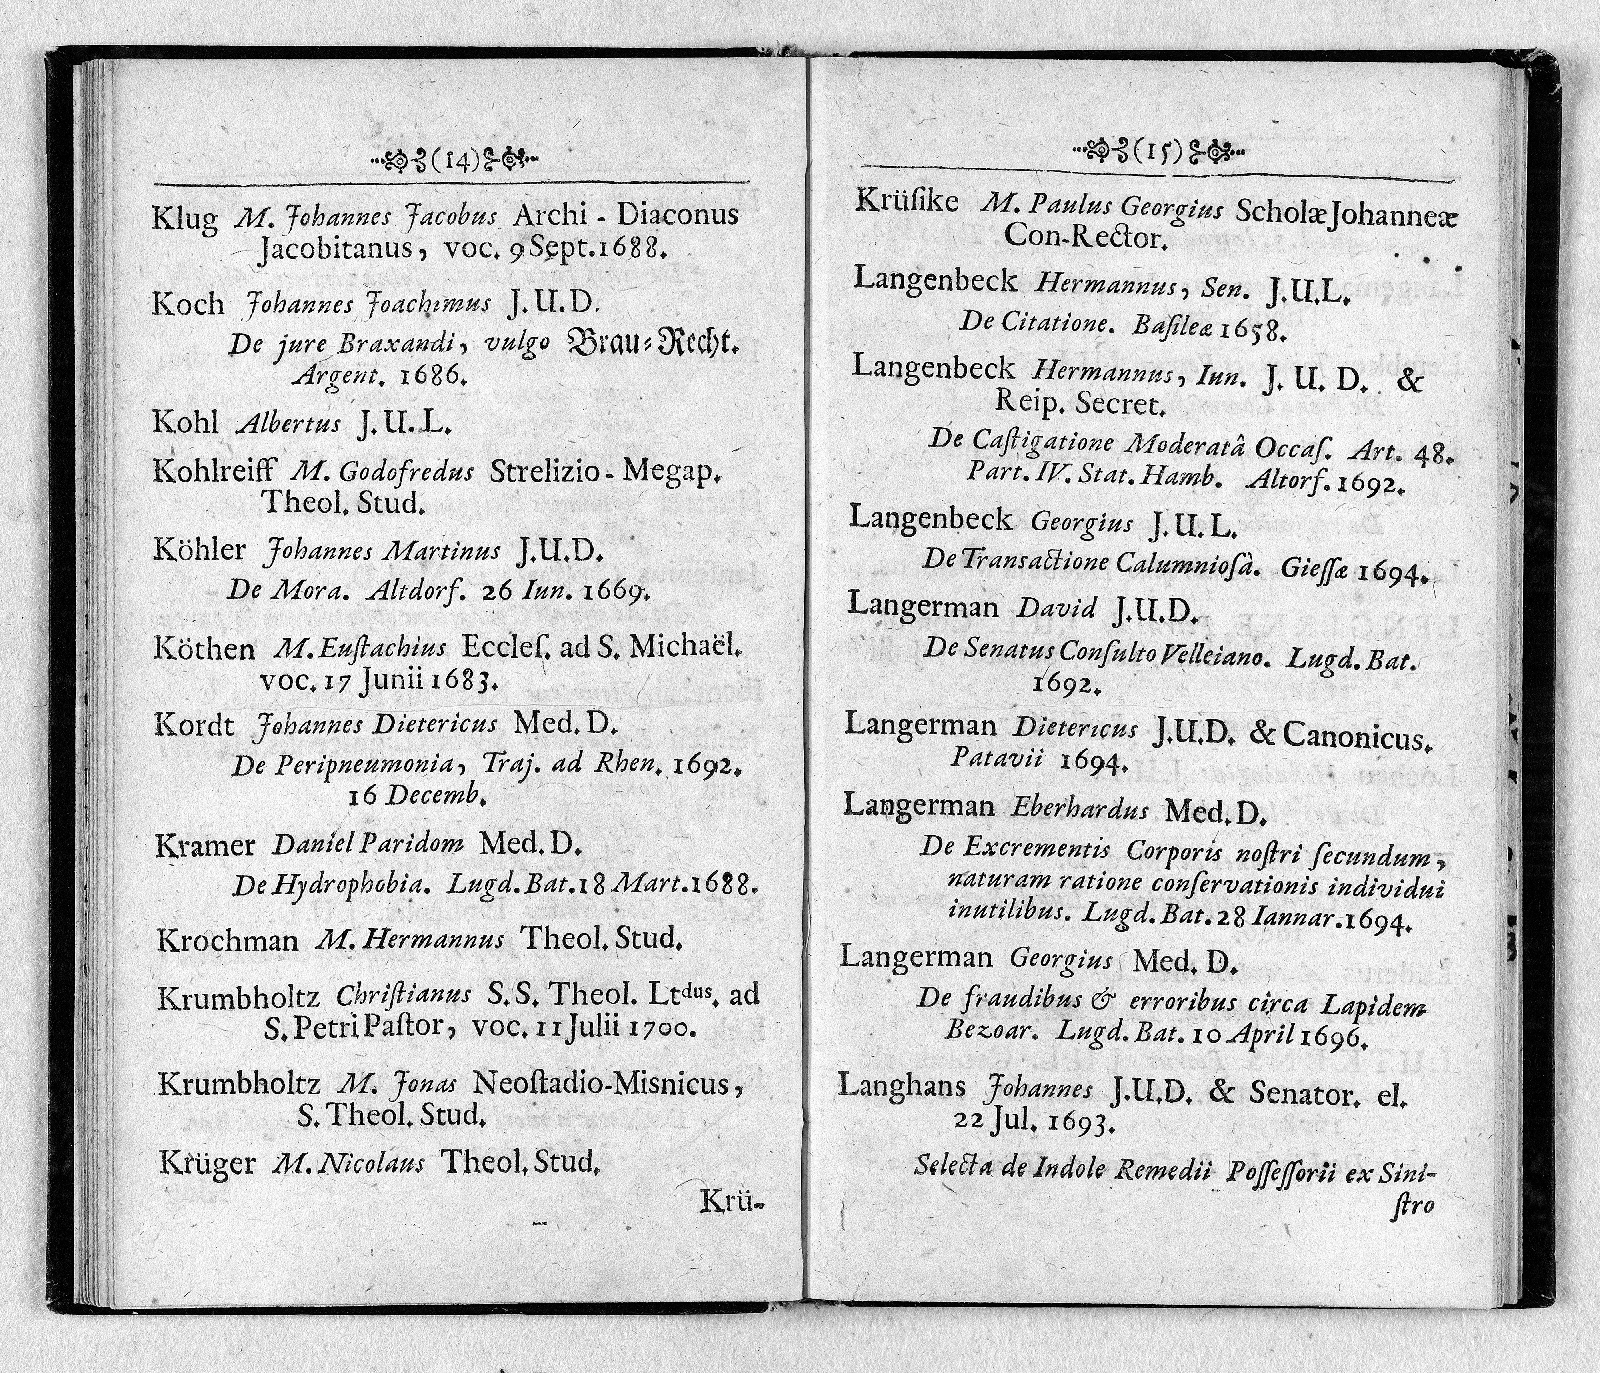 (14)
Klug M. Johannes Jacobus Archi-Diaconus
Jacobitanus, voc. 9 Sept. 1688.
Koch Johannes Joachimus J.U.D.
De jure Braxandi, vulgo Brau-Recht.
Argent. 1686.
Kohl Albertus J.U.L.
Kohlreiff M. Godofredus Strelizio-Megap.
Theol. Stud.
Köhler Johannes Martinus J.U.D.
De Mora. Altdorf. 26 Iun. 1669.
Köthen M. Euſtachius Eccleſ. ad S. Michaël.
voc. 17 Junii 1683.
Kordt Johannes Dietericus Med. D.
De Peripneumonia, Traj. ad Rhen. 1692.
16 Decemb.
Kramer Daniel Paridom Med. D.
De Hydrophobia. Lugd. Bat. 18 Mart. 1688.
Krochman M. Hermannus Theol. Stud.
Krumbholtz Chriſtianus S.S. Theol. Ltdus. ad
S. Petri Paſtor, voc. 11 Julii 1700.
Krumbholtz M. Jonas Neoſtadio-Misnicus,
S. Theol. Stud.
Krüger M. Nicolaus Theol. Stud.
Krü-
(15)
Krüſike M. Paulus Georgius Scholæ Johanneæ
Con-Rector.
Langenbeck Hermannus, Sen. J.U.L.
De Citatione. Baſileæ 1658.
Langenbeck Hermannus, Iun. J. U. D. &
Reip. Secret.
De Caſtigatione Moderatâ Occaſ. Art. 48.
Part. IV. Stat. Hamb. Altorf. 1692.
Langenbeck Georgius J.U.L.
De Transactione Calumnioſâ. Gieſſæ 1694.
Langerman David J.U.D.
De Senatus Conſulto Velleiano. Lugd. Bat.
1692.
Langerman Dietericus J.U.D. & Canonicus.
Patavii 1694.
Langerman Eberhardus Med. D.
De Excrementis Corporis noſtri ſecundum,
naturam ratione conſervationis individui
inutilibus. Lugd. Bat. 28 Iannar. 1694.
Langerman Georgius Med. D.
De fraudibus & erroribus circa Lapidem
Bezoar. Lugd. Bat. 10 April 1696.
Langhans Johannes J.U.D. & Senator. el.
22 Jul. 1693.
Selecta de Indole Remedii Poſſeſſorii ex Sini-
ſtro